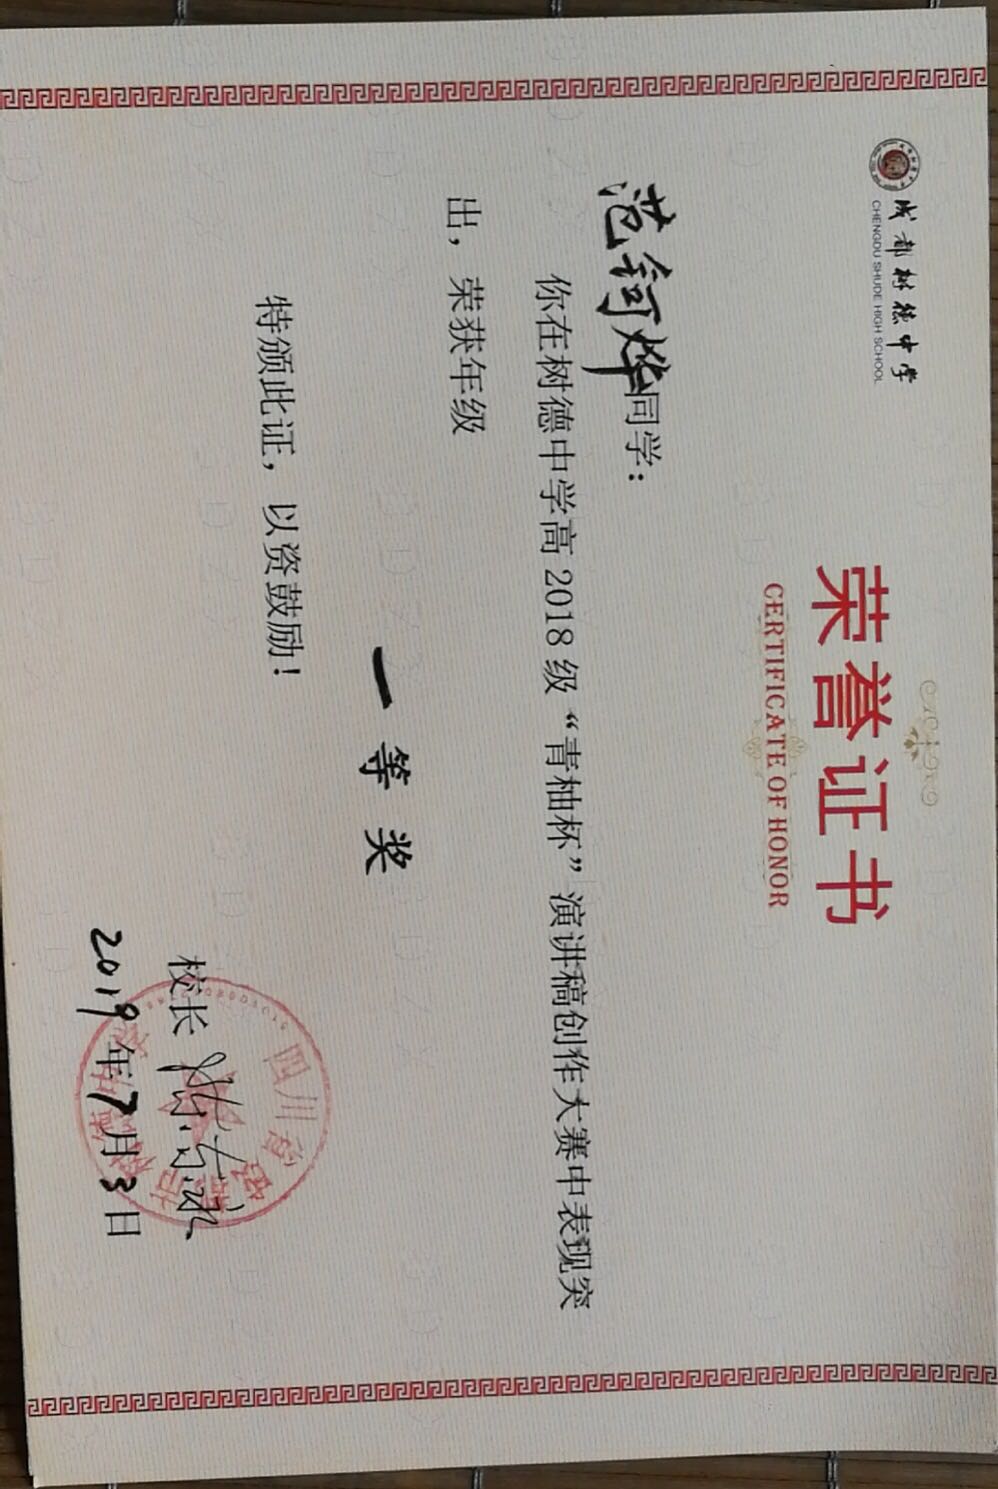 成都树德中学
CHENGDU SHUDE HIGH SCHOOL
荣誉证书
CERTIFICATE OF HONOR
范钶烨同学：
你在树德中学高2018级“青柚杯”演讲稿创作大赛中表现突
出，荣获年级
一等奖
特颁此证，以资鼓励！
校长
2019年7月3日
四川省成都市树德中学